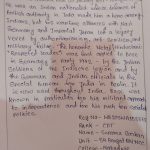 He was an Indian nationalist whose defiance of
British authority in India made him a hero among
Indians. But his wartime alliances with Nazi
Germany and Imperial Japan left a legacy
vexed by authoritarianism, anti-Semitism, and
military failure. The honorific 'Netaji' (Hindustani:
"Respected leader") was first applied to Bose
in Germany in early 1942 - by the Indian
Soldiers of the Indische Legion and by
the German and Indian officials in the
Special Bureau for India in Berlin. It
is now used throughout India. Bose was
known in particular for his militant approach
to independence and his push for socialist
policies.
Reg No -
Rank - CDT
Name -
Unit -
College -